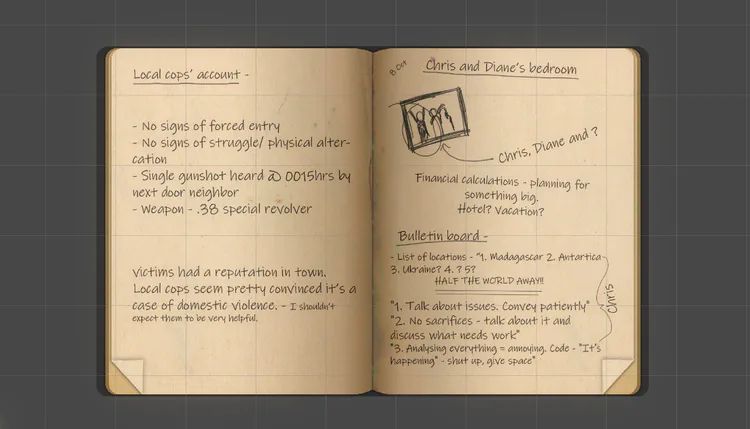 Local cops' account -
- No signs of forced entry
- No signs of struggle/ physical alter-
cation
- Single gunshot heard @ 0015hrs by
next door neighbor
- Weapon - .38 special revolver
victims had a reputation in town.
Local cops seem pretty convinced it's a
case of domestic violence. - I shouldn't
expect them to be very helpful.
8 Oct
Chris and Diane's bedroom
Chris, Diane and ?
Financial calculations - planning for
something big.
Hotel? Vacation?
Bulletin board -
- List of locations - "1. Madagascar 2. Antartica
3. Ukraine? 4. ? 5?
HALF THE WORLD AWAY!!
"1. Talk about issues. Convey patiently"
"2. No sacrifices - talk about it and
discuss what needs work"
"3. Analysing everything = annoying. Code - "It's
happening" - shut up, give space"
Chris